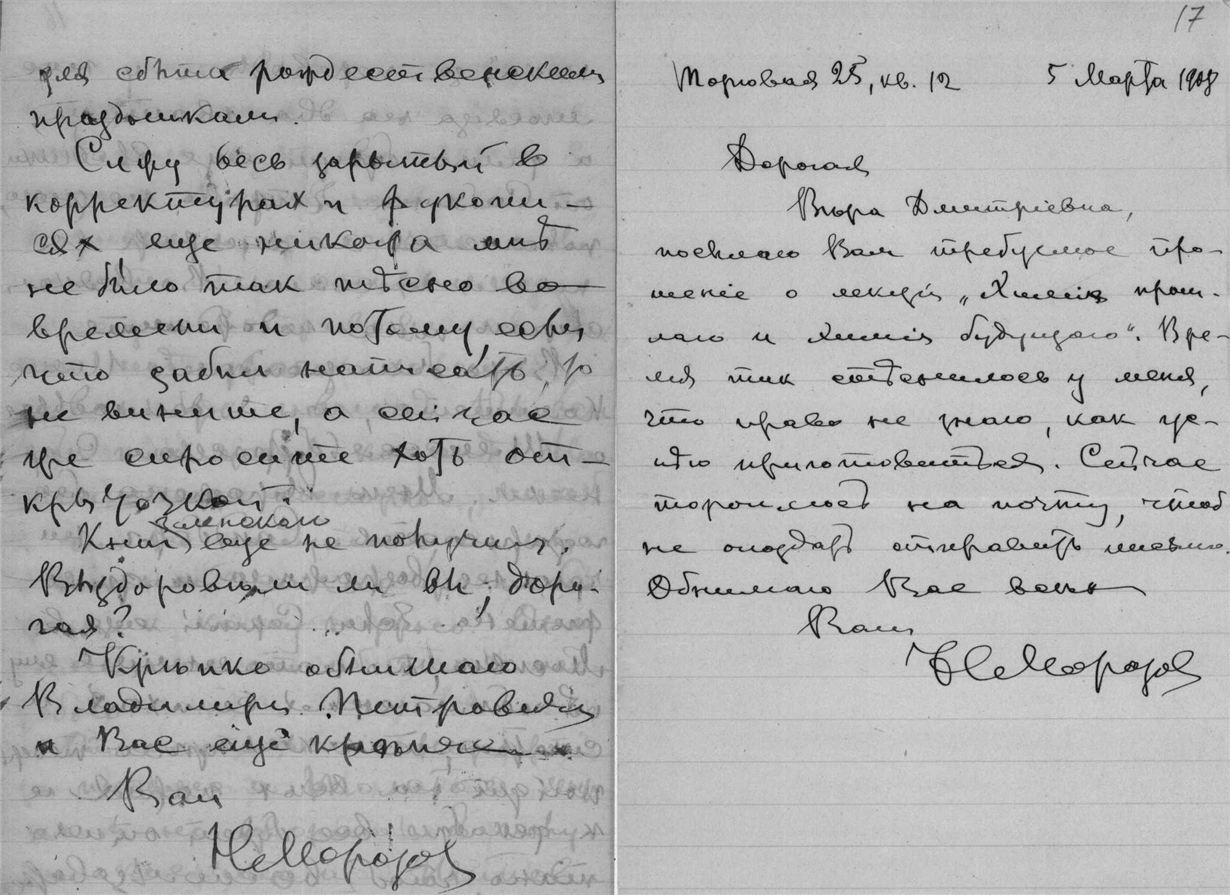 для сбыта рождественскими
праздниками.
Сижу весь зарытый в
корректурах и рукопи-
сях, еще никогда мнѣ
не было так тѣсно во
времени и потому, если
что забыл написать, то
не вините, а сейчас
же спросите хоть от-
крыточкой.
Книг еще не получил.
Выздоровѣли ли вы, доро-
гая?
Крѣпко обнимаю
Владимира Петровича
и Вас еще крѣпче.
Ваш
Н Морозов
17
Торговая 25, кв. 12 5 Марта 1908
Дорогая
Вѣра Дмитріевна,
посылаю Вам требуемое про-
шеніе о лекціи „Химія прош-
лаго и химія будущаго“. Вре-
мя так стѣснилось у меня,
что право не знаю, как
приготовиться. Сейчас
тороплюсь на почту, чтоб
не опоздать отправить письмо.
Обнимаю Вас
Ваш
Н Морозов